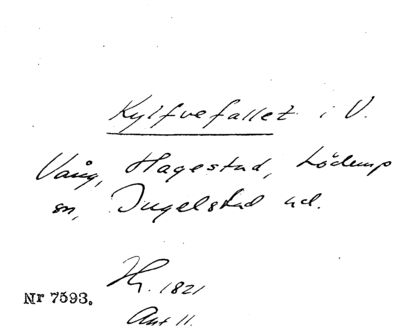 Kylfvefallet i V.
Vång, Hagestad, Löderup
sn, Ingelstad hd.
Hr. 1821
Nr 7593.
Akt 11.